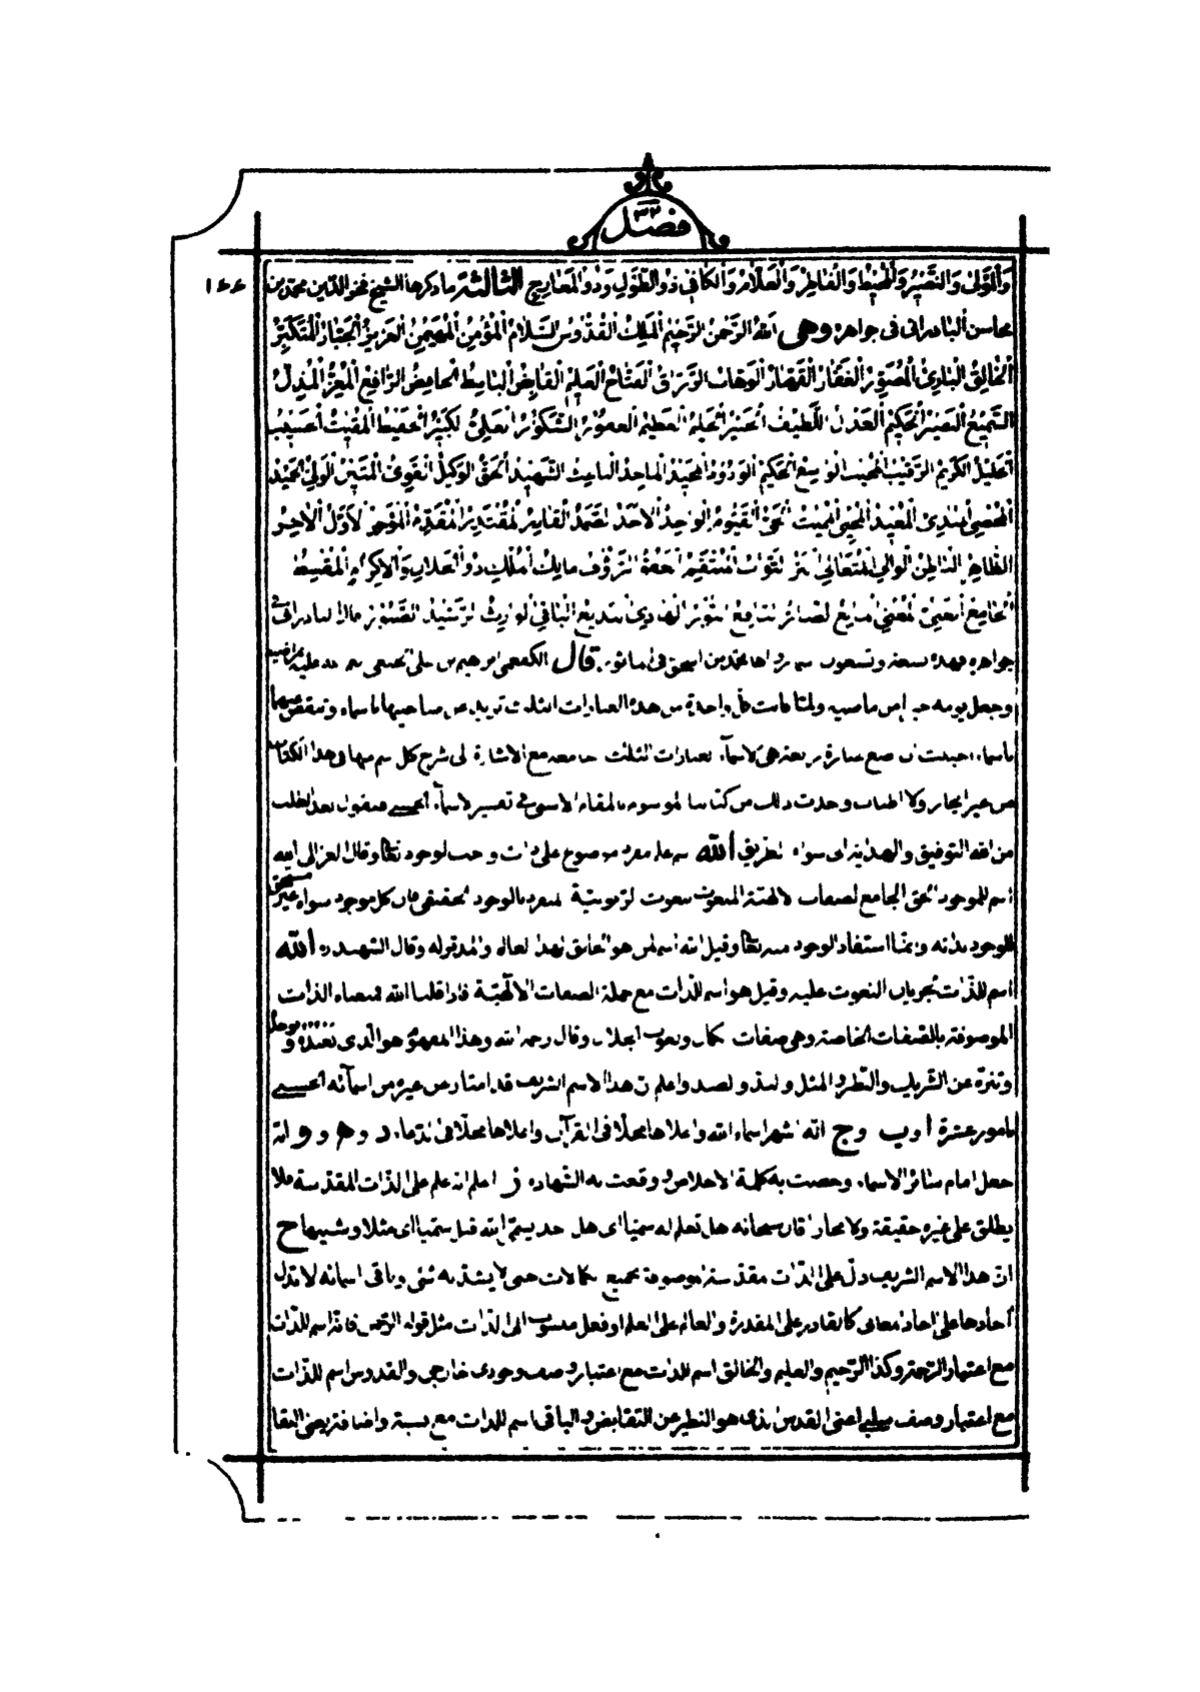 فصل ٣٢
١٤٤
وَالْمَوْلٰى وَالنَّصِيرُ وَالْمُحِيطُ وَالْفَاطِرُ وَالْعَلَّامُ وَالْكَافِي ذُو الطَّوْلِ وَذُو الْمَعَارِجِ الثالثة ما ذكرها الشيخ فخر الدين محمد بن
محاسن البادرائى فى جواهره وهى اَللّٰهُ الرَّحْمٰنُ الرَّحِيمُ الْمَلِكُ الْقُدُّوسُ السَّلَامُ الْمُؤْمِنُ الْمُهَيْمِنُ الْعَزِيزُ الْجَبَّارُ الْمُتَكَبِّرُ
الْخَالِقُ الْبَارِئُ الْمُصَوِّرُ الْغَفَّارُ الْقَهَّارُ الْوَهَّابُ الرَّزَّاقُ الْفَتَّاحُ الْعَلِيمُ الْقَابِضُ الْبَاسِطُ الْخَافِضُ الرَّافِعُ الْمُعِزُّ الْمُذِلُّ
السَّمِيعُ الْبَصِيرُ الْحَكِيمُ الْعَدْلُ اللَّطِيفُ الْخَبِيرُ الْحَلِيمُ الْعَظِيمُ الْغَفُورُ الشَّكُورُ الْعَلِيُّ الْكَبِيرُ الْحَفِيظُ الْمُقِيتُ الْحَسِيبُ
الْجَلِيلُ الْكَرِيمُ الرَّقِيبُ الْمُجِيبُ الْوَاسِعُ الْحَكِيمُ الْوَدُودُ الْمَجِيدُ الْمَاجِدُ الْبَاعِثُ الشَّهِيدُ الْحَقُّ الْوَكِيلُ الْقَوِيُّ الْمَتِينُ الْوَلِيُّ الْحَمِيدُ
الْمُحْصِي الْمُبْدِئُ الْمُعِيدُ الْمُحْيِي الْمُمِيتُ الْحَيُّ الْقَيُّومُ الْوَاحِدُ الْأَحَدُ الصَّمَدُ الْقَادِرُ الْمُقْتَدِرُ الْمُقَدِّمُ الْمُؤَخِّرُ الْأَوَّلُ الْآخِرُ
الظَّاهِرُ الْبَاطِنُ الْوَالِي الْمُتَعَالِي الْبَرُّ التَّوَّابُ الْمُنْتَقِمُ الْعَفُوُّ الرَّؤُفُ مَالِكُ الْمُلْكِ ذُو الْجَلَالِ وَالْاِكْرَامِ الْمُقْسِطُ
الْجَامِعُ الْغَنِيُّ الْمُغْنِي الْمَانِعُ الضَّارُّ النَّافِعُ النُّورُ الْهَادِي الْبَدِيعُ الْبَاقِي الْوَارِثُ الرَّشِيدُ الصَّبُورُ قال البادرائى فى
جواهره فهذه تسعة وتسعون اسما رواها محمد بن اسحق فى المأثور قال الكفعمى ابرهيم بن على الجبعى
وجعل يومه خيرا من ماضيه ولما كانت كل واحدة من هذه العبارات الثلث تزيد عن صاحبتها باسماء وتنقص عنها
باسماء احببت ان اضع عبارة رابعة هى لاسماء العبارات الثلث جامعة مع الاشارة الى شرح كل اسم منها فى هذا الكتاب
من غير ايجاز ولا اطناب وجدت ذلك من كتابنا الموسوم بالمقام الاسنى فى تفسير الاسماء الحسنى فنقول بعد الطلب
من الله التوفيق والهداية الى سواء الطريق الله اسم علم مفرد موضوع على ذات واجب الوجود تعالى وقال الغزالى الله
اسم للموجود الحق الجامع لصفات الالهية المنعوت بنعوت الربوبية المنفرد بالوجود الحقيقى فان كل موجود سواه غير مستحق
للوجود بذاته وانما استفاد الوجود منه تعالى وقيل الله اسم لمن هو الخالق لهذا العالم والمدبر له وقال الشهيد ره الله
اسم للذات لجريان النعوت عليه وقيل هو اسم للذات مع جملة الصفات الالهية فاذا قلنا الله فمعناه الذات
الموصوفة بالصفات الخاصة وهى صفات الكمال ونعوت الجلال وقال رحمه الله وهذا المفهوم هو الذى نعبده ونوحد
وتنزه عن الشريك والنظير والمثل والند والضد واعلم ان هذا الاسم الشريف قد امتاز عن غيره من اسمائه الحسنى
بامور عشرة ا و ب و ج انه اشهر اسماء الله واعلاها محلا فى القرآن واعلاها محلا فى الدعاء و د و ه و و انه
جعل امام سائر الاسماء وخصت به كلمة الاخلاص ووقعت به الشهادة ز اعلم انه علم على الذات المقدسة فلا
يطلق على غيره حقيقة ولا مجازا قال سبحانه هل تعلم له سميا اى هل احد يسمى الله قيل سميا اى مثلا وشبيها ح
ان هذا الاسم الشريف دل على الذات المقدسة الموصوفة بجميع الكمالات حتى لا يشذ به شئ وباقى اسمائه لا تدل
آحادها على احاد المعانى كالقادر على القدرة والعالم على العلم او فعل منسوب الى الذات مثل قوله الرحمن فانه اسم للذات
مع اعتبار الرحمة وكذا الرحيم والعليم والخالق اسم للذات مع اعتبار وصف وجودى خارجى والقدوس اسم للذات
مع اعتبار وصف سلبى اعنى القدس الذى هو التطهر عن النقايض والباقى اسم للذات مع نسبة واضافة يعنى البقا